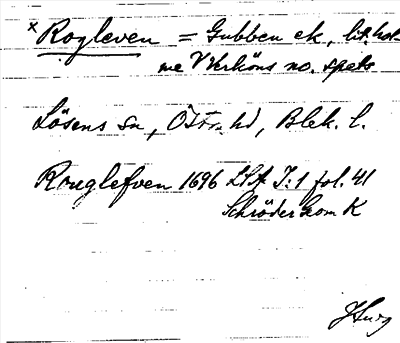 x Rogleven = Gubben ek, lit. hol-
me V Verköns no. spets
Lösens sn, Östra hd, Blek. l.
Rouglefven 1696 LSA I:1 fol. 41
Schröder Geom K